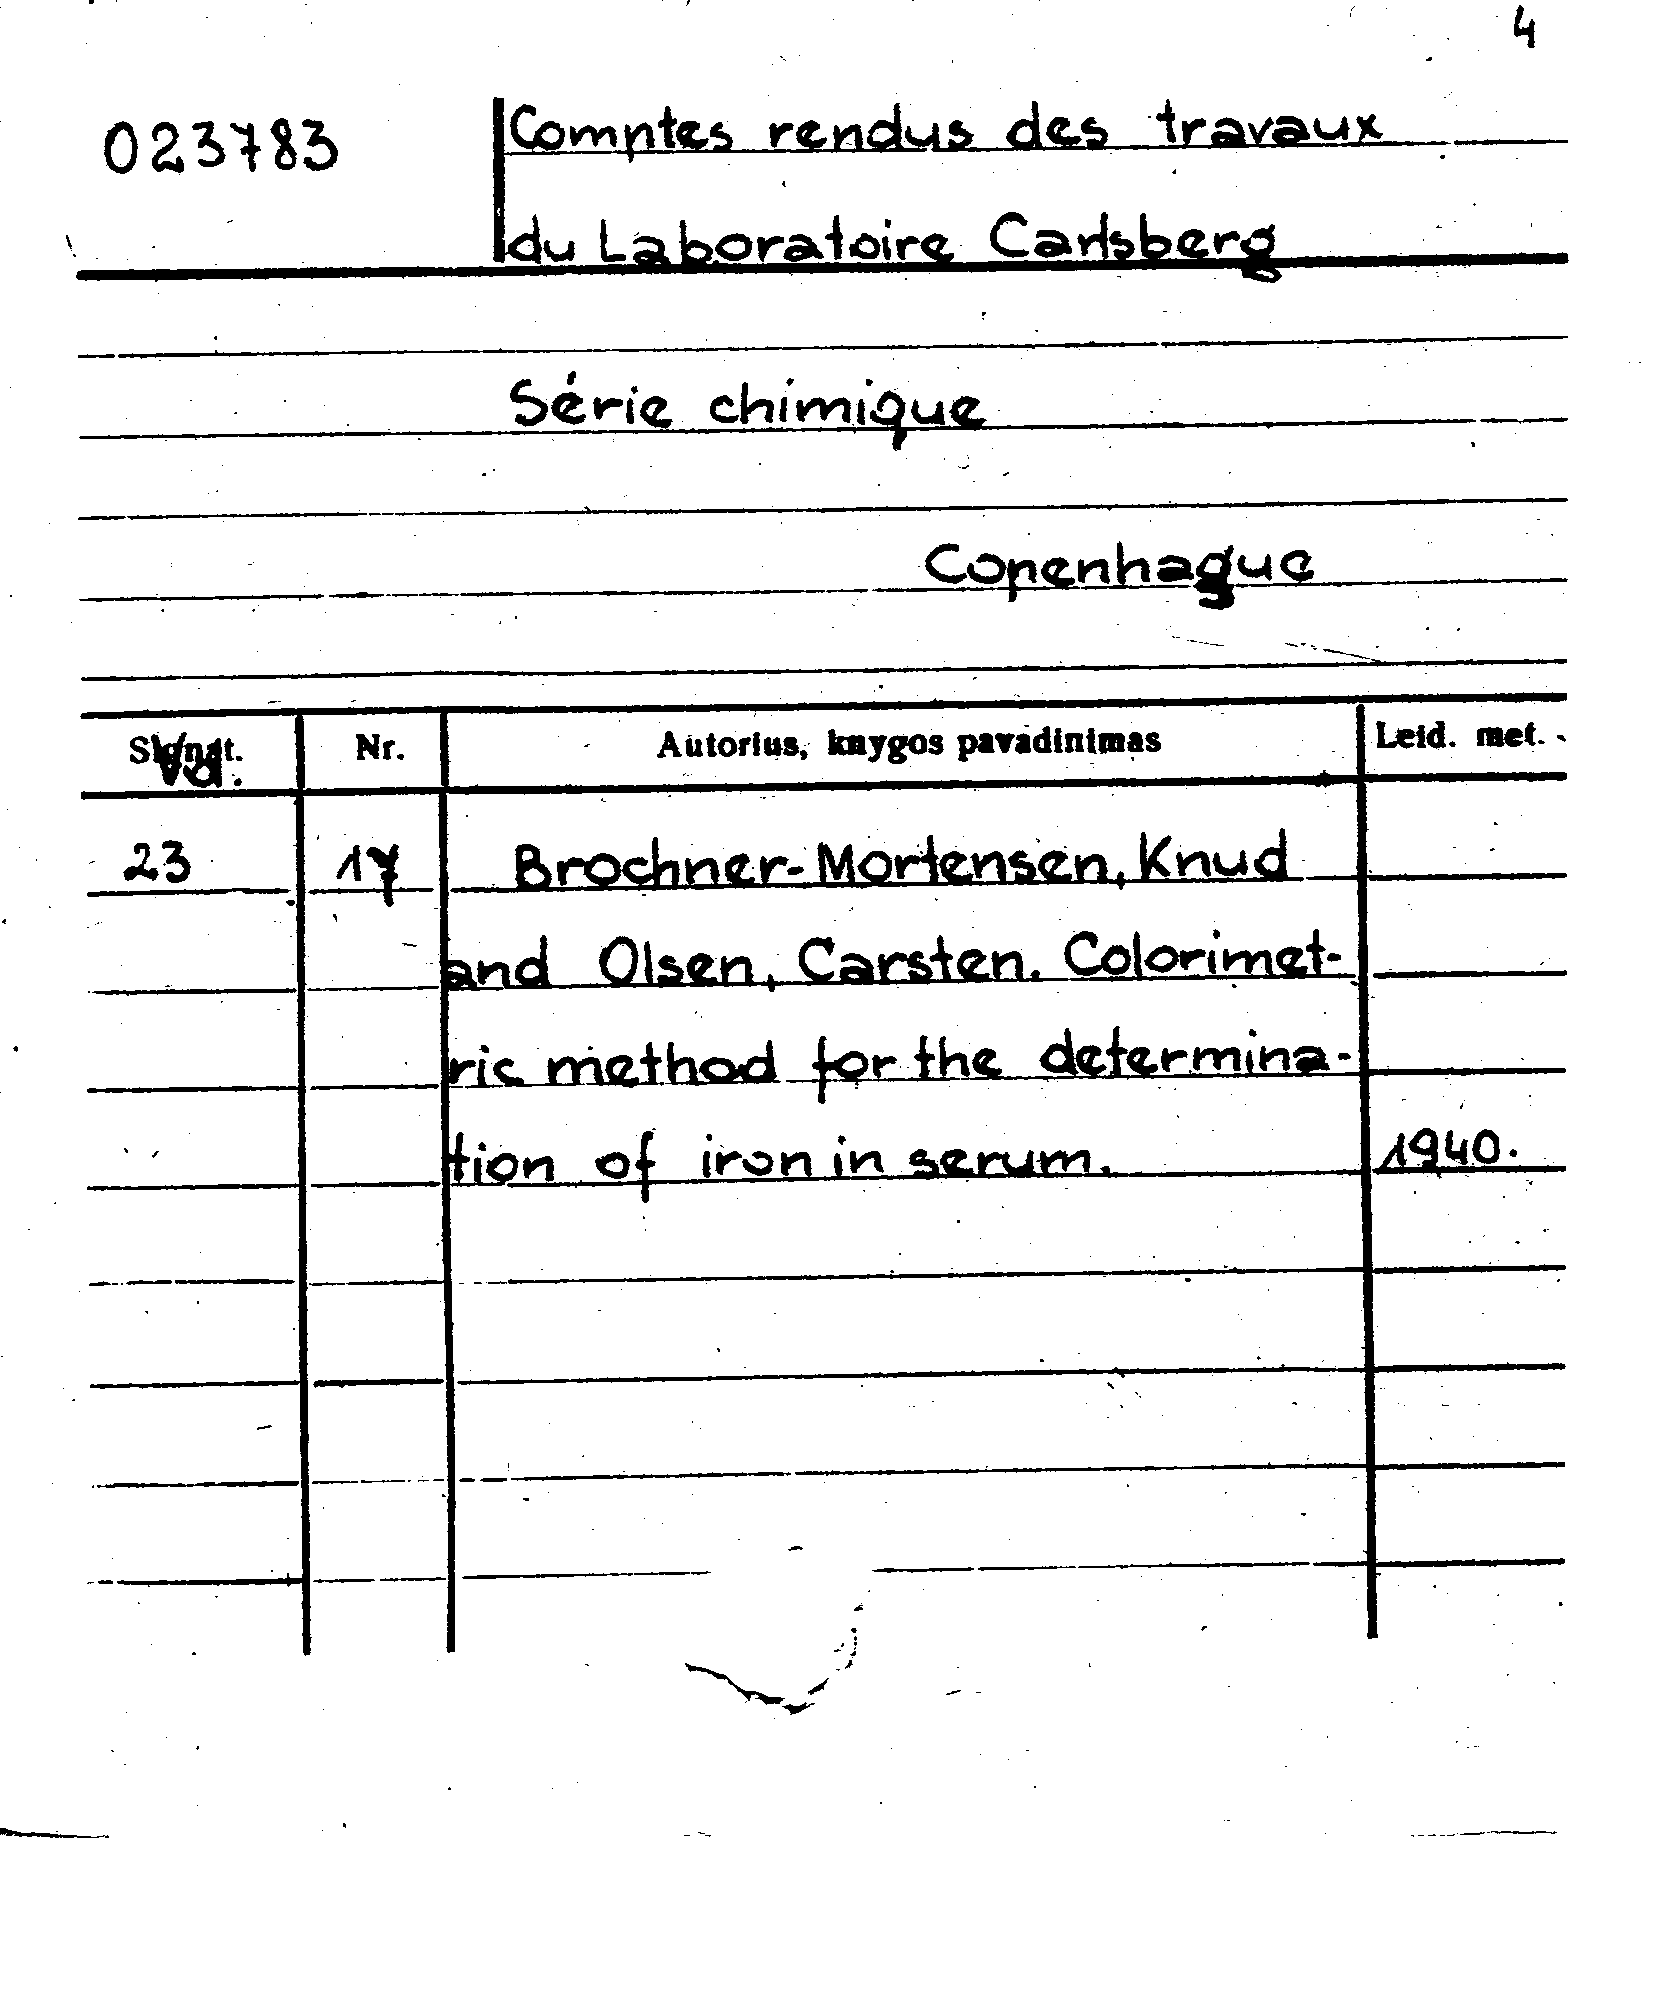 4
023783 Comptes rendus des travaux
du Laboratoire Carlsberg
Série chimique
Copenhague
Signat. Nr. Autorius, knygos pavadinimas Leid. met.
Vol.
23 17 Brochner-Mortensen, Knud
and Olsen, Carsten. Colorimet-
ric method for the determina-
tion of iron in serum. 1940.